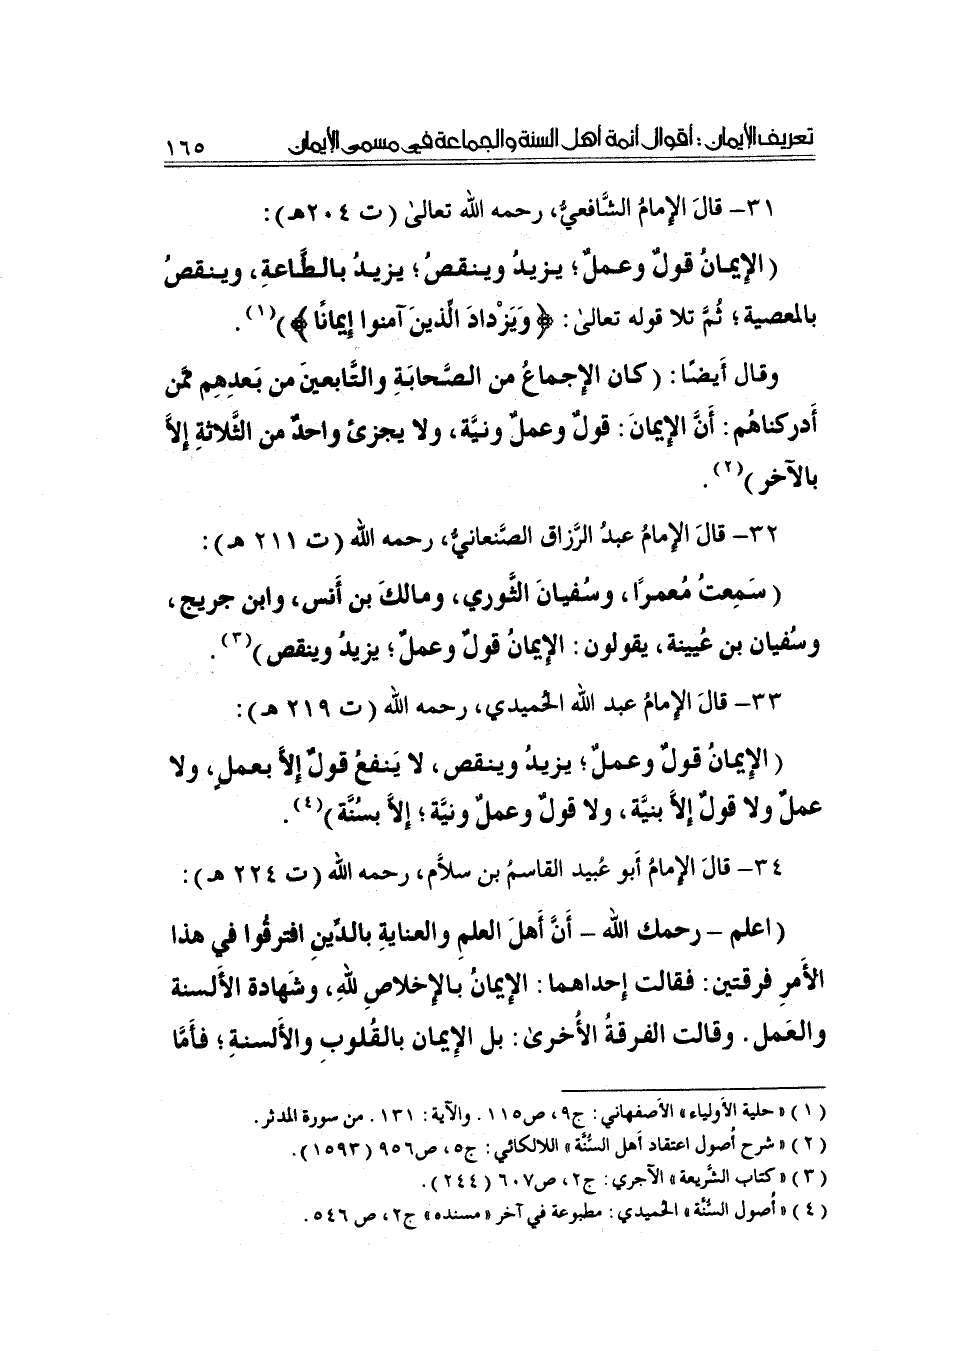 تعريف الإيمان : أقوال أئمة أهل السنة والجماعة في مسمى الإيمان ١٦٥
٣١ – قالَ الإمامُ الشَّافعيُّ، رحمه الله تعالىٰ (ت ٢٠٤هـ) :
( الإيمانُ قولٌ وعملٌ ؛ يزيدُ وينقصُ ؛ يزيدُ بالطَّاعةِ، وينقصُ
بالمعصية ؛ ثُمَّ تلا قوله تعالىٰ : ﴿ وَيَزْدادَ الَّذينَ آمنوا إيمانًا ﴾ )(١) .
وقال أيضًا : ( كان الإجماعُ من الصَّحابَةِ والتَّابعينَ من بَعدِهِم ممَّن
أَدركناهُم : أَنَّ الإيمانَ : قولٌ وعملٌ ونيَّة، ولا يجزئ واحدٌ من الثَّلاثةِ إلاَّ
بالآخر )(٢) .
٣٢ – قالَ الإمامُ عبدُ الرَّزاق الصَّنعانيُّ، رحمه الله (ت ٢١١ هـ) :
( سَمِعتُ مُعمرًا ، وسُفيانَ الثَّوري، ومالكَ بن أَنس، وابن جريج ،
وسُفيان بن عُيينة، يقولون : الإيمانُ قولٌ وعملٌ ؛ يزيدُ وينقص )(٣) .
٣٣ – قالَ الإمامُ عبد الله الحُميدي، رحمه الله (ت ٢١٩ هـ) :
( الإيمانُ قولٌ وعملٌ ؛ يزيدُ وينقص، لا يَنفعُ قولٌ إلاَّ بعملٍ، ولا
عملٌ ولا قولٌ إلاَّ بنيَّة، ولا قولٌ وعملٌ ونيَّة ؛ إلاَّ بسُنَّة )(٤) .
٣٤ – قالَ الإمامُ أَبو عُبيد القاسمُ بن سلاَّم، رحمه الله (ت ٢٢٤ هـ) :
( اعلم – رحمك الله – أَنَّ أَهلَ العلمِ والعنايةِ بالدِّينِ افترقُوا في هذا
الأَمرِ فرقتين : فقالت إحداهما : الإيمانُ بالإخلاصِ للهِ، وشَهادة الأَلسنة
والعَمل . وقالت الفرقةُ الأُخرىٰ : بل الإيمان بالقُلوبِ والأَلسنةِ ؛ فأَمَّا
(١) « حلية الأولياء » الأصفهاني : ج٩، ص١١٥ . والآية : ١٣١ . من سورة المدثر .
(٢) « شرح أُصول اعتقاد أهل السُّنَّة » اللالكائي : ج٥، ص٩٥٦ (١٥٩٣) .
(٣) « كتاب الشَّريعة » الآجري : ج٢، ص٦٠٧ (٢٤٤) .
(٤) « أُصول السُّنَّة » الحُميدي : مطبوعة في آخر « مسنده » ج٢، ص ٥٤٦ .